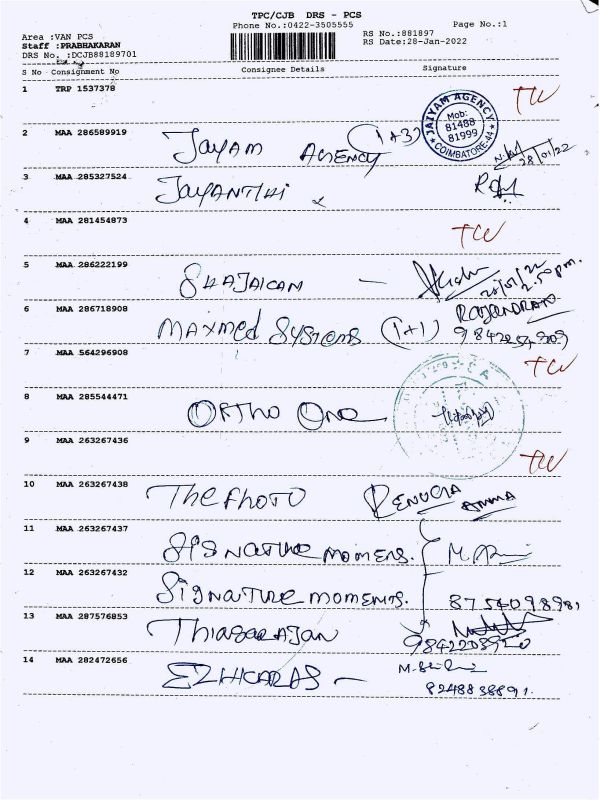 TPC/CJB DRS - PCS
Phone No.:0422-3505555
Page No.:1
Area :VAN PCS
RS No.:881897
Staff :PRABHAKARAN
RS Date:28-Jan-2022
DRS No. :DCJB88189701
S No Consignment No Consignee Details Signature
1 TRP 1537378
JAIYAM AGENCY
Mob:
81488
81999
COIMBATORE-44
2 MAA 286589919 JAYAM AGENCY (1+3) 28/01/22
3 MAA 285327524 JAYANTHI
4 MAA 281454873
5 MAA 286222199 2.50 pm.
6 MAA 286718908 MAXMED SYSTEMS (1+1) RAJENDRAN
7 MAA 564296908
8 MAA 285544471 ORTHO ONE
9 MAA 263267436
10 MAA 263267438 THE PHOTO RENUGA AMMA
11 MAA 263267437 SIGNATURE MOMENTS.
12 MAA 263267432 SIGNATURE MOMENTS. 8754098981
13 MAA 287576853 THIAGARAJAN
14 MAA 282472656
8248838891.